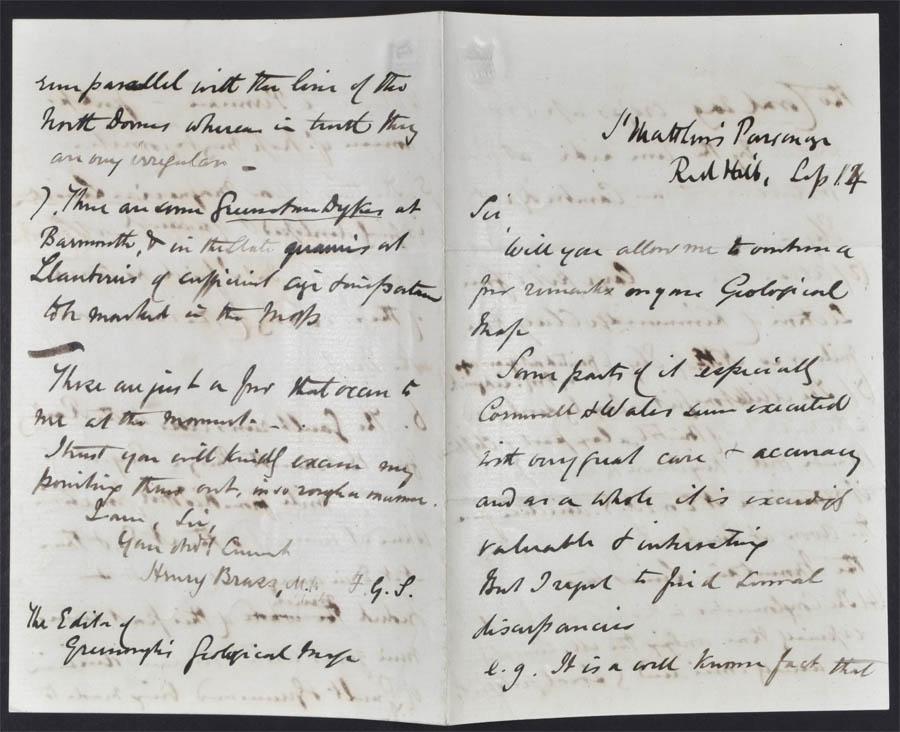 St Matthew's Parsonage
Red Hill, Sep 14
Sir
Will you allow me to venture a
few remarks on your Geological
Map
Some parts of it especially
Cornwall & Wales seem executed
with very great care & accuracy
and as a whole it is exceedingly
valuable & interesting
But I regret to find several
discrepancies
e.g. It is a well known fact that
run parallel with the line of the
North Downs whereas in truth they
are very irregular
7). There are some Greenstone Dykes at
Barmouth, & in the Slate quarries at
Llanberis of sufficient size & importance
to be marked in the Map
These are just a few that occur to
me at the moment.
I trust you will kindly excuse my
pointing these out, in so rough a manner.
I am, Sir,
Your obdt Servant
Henry Brass, M.A. F.G.S.
The Editor of
Greenough's Geological Map